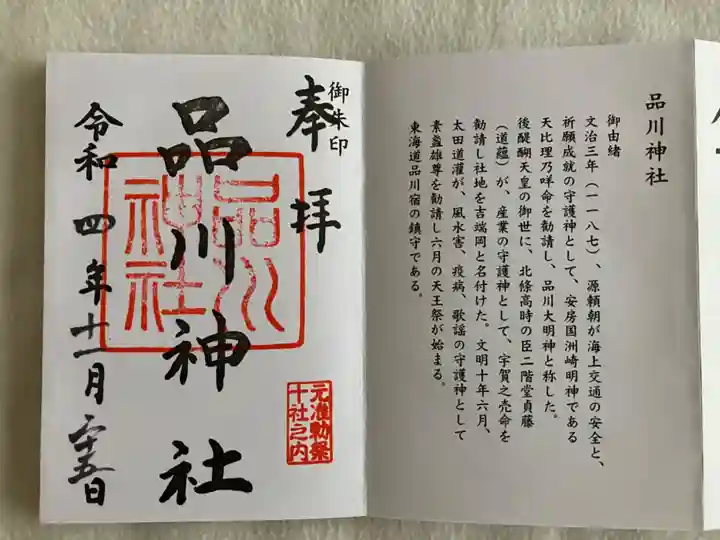 品川神社
御由緒
文治三年（一一八七）、源頼朝が海上交通の安全と、
祈願成就の守護神として、安房国洲崎明神である
天比理乃咩命を勧請し、品川大明神と称した。
後醍醐天皇の御世に、北條高時の臣二階堂貞藤
（道蘊）が、産業の守護神として、宇賀之売命を
勧請し社地を吉端岡と名付けた。文明十年六月、
太田道灌が、風水害、疫病、歌謡の守護神として
素盞雄尊を勧請し六月の天王祭が始まる。
東海道品川宿の鎮守である。
御朱印
奉拝
品川神社
品川
神社
元准勅祭
十社之内
令和四年十一月二十五日